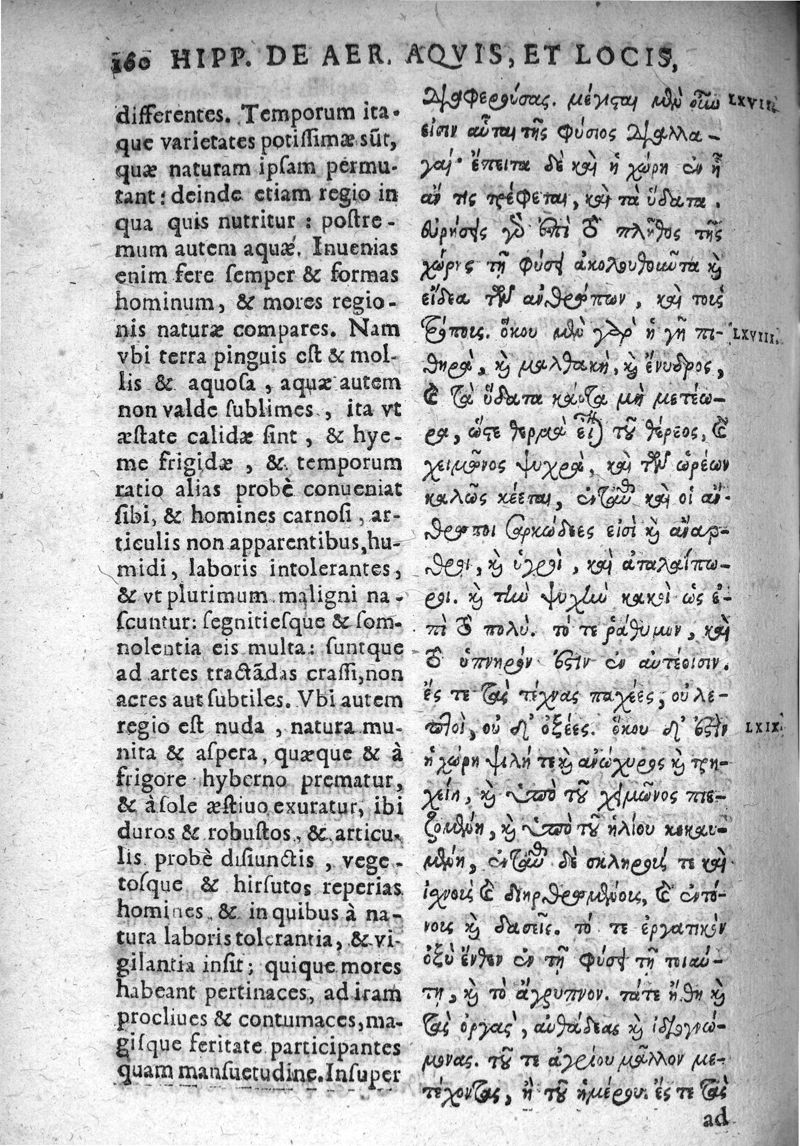 160 HIPP. DE AER. AQVIS, ET LOCIS,
differentes. Temporum ita-
que varietates potissimæ sũt,
quæ naturam ipsam permu-
tant: deinde etiam regio in
qua quis nutritur: postre-
mum autem aquæ. Inuenias
enim fere semper & formas
hominum, & mores regio-
nis naturæ compares. Nam
vbi terra pinguis est & mol-
lis & aquosa, aquæ autem
non valde sublimes, ita vt
æstate calidæ sint, & hye-
me frigidæ, & temporum
ratio alias probè conueniat
sibi, & homines carnosi, ar-
ticulis non apparentibus, hu-
midi, laboris intolerantes,
& vt plurimum maligni na-
scuntur: segnitiesque & som-
nolentia eis multa: suntque
ad artes tractãdas crassi, non
acres aut subtiles. Vbi autem
regio est nuda, natura mu-
nita & aspera, quæque & à
frigore hyberno prematur,
& à sole æstiuo exuratur, ibi
duros & robustos, & articu-
lis probè disiunctis, vege-
tosque & hirsutos reperias
homines, & in quibus à na-
tura laboris tolerantia, & vi-
gilantia insit; quique mores
habeant pertinaces, ad iram
procliues & contumaces, ma-
gisque feritate participantes
quam mansuetudine. Insuper
διαφερούσας. μέγισται μὲν οὕτω LXVII.
εἰσιν αὗται τῆς φύσιος διαλλα-
γαί· ἔπειτα δὲ καὶ ἡ χώρη ἐν ᾗ
ἄν τις τρέφεται, καὶ τὰ ὕδατα.
εὑρήσεις γὰρ ἐπὶ τὸ πλῆθος τῆς
χώρης τῇ φύσει ἀκολουθοῦντα καὶ
εἴδεα τῶν ἀνθρώπων, καὶ τοὺς
τρόπους. ὅκου μὲν γὰρ ἡ γῆ πι- LXVIII.
θηρὰ, καὶ μαλθακὴ, καὶ ἔνυδρος,
καὶ τὰ ὕδατα κάρτα μὴ μετέω-
ρα, ὥστε θερμὰ εἶναι τοῦ θέρεος, καὶ
χειμῶνος ψυχρὰ, καὶ τῶν ὡρέων
καλῶς κέεται, ἐνταῦθα καὶ οἱ ἄν-
θρωποι σαρκώδεές εἰσι καὶ ἄναρ-
θροι, καὶ ὑγροὶ, καὶ ἀταλαίπω-
ροι. καὶ τὴν ψυχὴν κακοὶ ὡς ἐ-
πὶ τὸ πολύ. τό τε ῥάθυμον, καὶ
τὸ ὑπνηρὸν ἐστὶν ἐν αὐτέοισιν.
ἔς τε τὰς τέχνας παχέες, οὐ λε-
πτοὶ, οὐδ' ὀξέες. ὅκου δ' ἐστὶν LXIX.
ἡ χώρη ψιλή τε καὶ ἀνώχυρος καὶ τρη-
χείη, καὶ ὑπὸ τοῦ χειμῶνος πιε-
ζομένη, καὶ ὑπὸ τοῦ ἡλίου κεκαυ-
μένη, ἐνταῦθα δὲ σκληρούς τε καὶ
ἰχνοὺς καὶ διηρθρωμένους, καὶ ἐντό-
νους καὶ δασεῖς. τό τε ἐργατικὸν
ὀξὺ ἔνθεν ἐν τῇ φύσει τῇ τοιαύ-
τῃ, καὶ τὸ ἄγρυπνον. τάτε ἤθη καὶ
τὰς ὀργὰς, αὐθάδεας καὶ ἰδιογνώ-
μονας. τοῦ τε ἀγρίου μᾶλλον με-
τέχοντας, ἢ τοῦ ἡμέρου. ἔς τε τὰς
ad